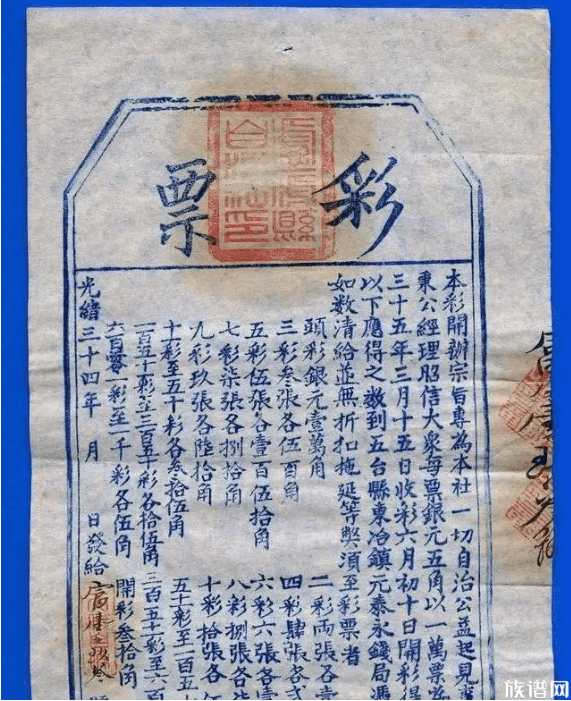 彩票
本彩開辦宗旨專為本社一切自治公益起見
東公經理昭信大衆每票銀元五角以一萬票
三十五年三月十五日收彩六月初十日開彩得
以下應得之数到五台縣東冶鎮元泰永錢局憑
如数清給並無折扣拖延等獘須至彩票者
頭彩銀元壹萬角
二彩兩張各壹
三彩叁張各伍百角
四彩肆張各弍
五彩伍張各壹百伍拾角
六彩六張各壹
七彩柒張各捌拾角
八彩捌張各柒
九彩玖張各陸拾角
十彩拾張各
十一彩至五十彩各叁拾伍角
五十一彩至一百五十
一百五十一彩至三百五十彩各拾伍角
三百五十一彩至六百
六百零一彩至一千彩各伍角
開彩叁拾角
光緒三十四年 月 日發給
族谱网